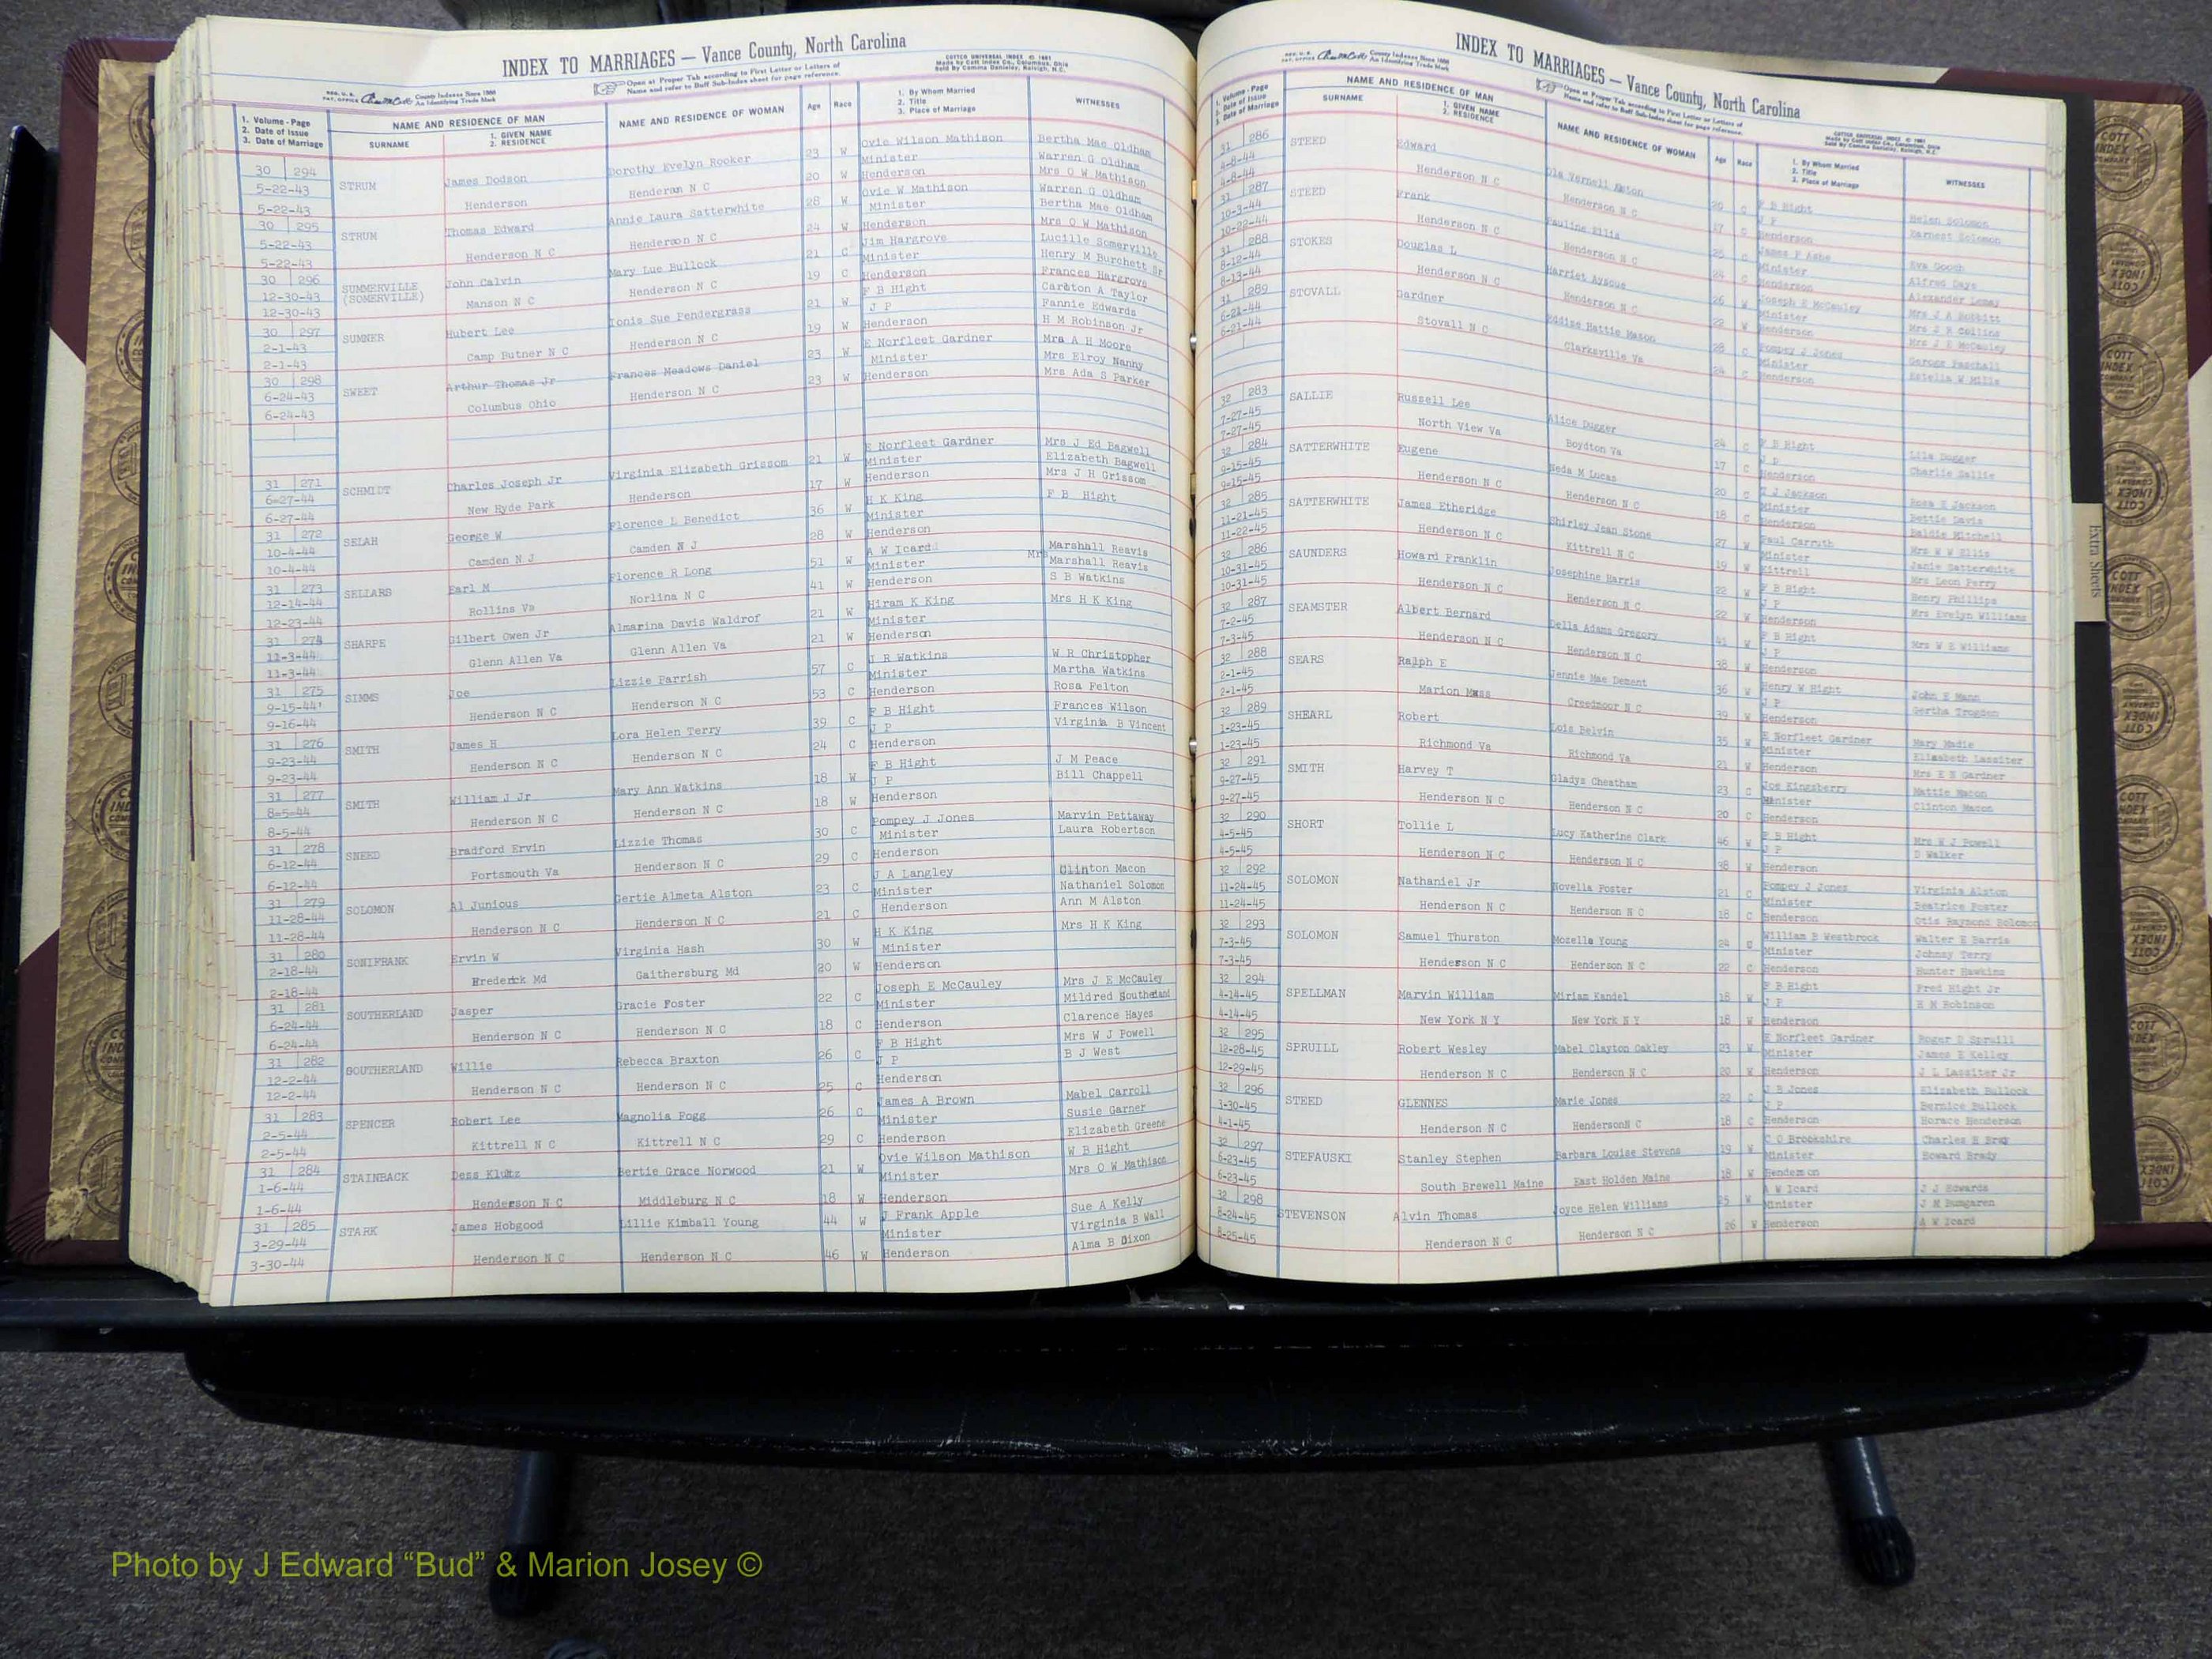 INDEX TO MARRIAGES — Vance County, North Carolina
Open at Proper Tab according to First Letter or Letters of
Name and refer to Buff Sub-Index sheet for page reference.
COTTCO UNIVERSAL INDEX
Made by Cott Index Co., Columbus, Ohio
1. Volume - Page
2. Date of Issue
3. Date of Marriage
NAME AND RESIDENCE OF MAN
SURNAME
1. GIVEN NAME
2. RESIDENCE
NAME AND RESIDENCE OF WOMAN
Age
Race
1. By Whom Married
2. Title
3. Place of Marriage
WITNESSES
30 294 STRUM James Dodson Dorothy Evelyn Rooker 23 W Ovie Wilson Mathison Bertha Mae Oldham
5-22-43 Minister Warren G Oldham
5-22-43 Henderson Henderson N C 20 W Henderson Mrs O W Mathison
30 295 STRUM Thomas Edward Annie Laura Satterwhite 28 W Ovie W Mathison Warren G Oldham
5-22-43 Minister Bertha Mae Oldham
5-22-43 Henderson N C Henderson N C 24 W Henderson Mrs O W Mathison
30 296 SUMMERVILLE John Calvin Mary Lue Bullock 21 C Jim Hargrove Lucille Somerville
12-30-43 (SOMERVILLE) Minister Henry M Burchett Sr
12-30-43 Manson N C Henderson N C 19 C Henderson Frances Hargrove
30 297 SUMNER Hubert Lee Tonie Sue Pendergrass 21 W F B Hight Carlton A Taylor
2-1-43 J P Fannie Edwards
2-1-43 Camp Butner N C Henderson N C 19 W Henderson H M Robinson Jr
30 298 SWEET Arthur Thomas Jr Frances Meadows Daniel 23 W E Norfleet Gardner Mrs A H Moore
6-24-43 Minister Mrs Elroy Nanny
6-24-43 Columbus Ohio Henderson N C 23 W Henderson Mrs Ada S Parker
31 271 SCHMIDT Charles Joseph Jr Virginia Elizabeth Grissom 21 W E Norfleet Gardner Mrs J Ed Bagwell
6-27-44 Minister Elizabeth Bagwell
6-27-44 New Hyde Park Henderson 17 W Henderson Mrs J H Grissom
31 272 SELAH George W Florence L Benedict 36 W H K King F B Hight
10-4-44 Minister
10-4-44 Camden N J Camden N J 28 W Henderson
31 273 SELLARS Earl M Florence R Long 51 W A W Icard Mrs Marshall Reavis
12-14-44 Minister Marshall Reavis
12-23-44 Rollins Va Norlina N C 41 W Henderson S B Watkins
31 274 SHARPE Gilbert Owen Jr Almarina Davis Waldrof 21 W Hiram K King Mrs H K King
11-3-44 Minister
11-3-44 Glenn Allen Va Glenn Allen Va 21 W Henderson
31 275 SIMMS Joe Lizzie Parrish 57 C J R Watkins W R Christopher
9-15-44 Minister Martha Watkins
9-16-44 Henderson N C Henderson N C 53 C Henderson Rosa Felton
31 276 SMITH James H Lora Helen Terry 39 C F B Hight Frances Wilson
9-23-44 J P Virginia B Vincent
9-23-44 Henderson N C Henderson N C 24 C Henderson
31 277 SMITH William J Jr Mary Ann Watkins 18 W F B Hight J M Peace
8-5-44 J P Bill Chappell
8-5-44 Henderson N C Henderson N C 18 W Henderson
31 278 SNEED Bradford Ervin Lizzie Thomas 30 C Pompey J Jones Marvin Pettaway
6-12-44 Minister Laura Robertson
6-12-44 Portsmouth Va Henderson N C 29 C Henderson
31 279 SOLOMON Al Junious Gertie Almeta Alston 23 C J A Langley Clinton Macon
11-28-44 Minister Nathaniel Solomon
11-28-44 Henderson N C Henderson N C 21 C Henderson Ann M Alston
31 280 SONIFRANK Ervin W Virginia Hash 30 W H K King Mrs H K King
2-18-44 Minister
2-18-44 Frederick Md Gaithersburg Md 20 W Henderson
31 281 SOUTHERLAND Jasper Gracie Foster 22 C Joseph E McCauley Mrs J E McCauley
6-24-44 Minister Mildred Southerland
6-24-44 Henderson N C Henderson N C 18 C Henderson Clarence Hayes
31 282 SOUTHERLAND Willie Rebecca Braxton 26 C F B Hight Mrs W J Powell
12-2-44 J P B J West
12-2-44 Henderson N C Henderson N C 25 C Henderson
31 283 SPENCER Robert Lee Magnolia Fogg 26 C James A Brown Mabel Carroll
2-5-44 Minister Susie Garner
2-5-44 Kittrell N C Kittrell N C 29 C Henderson Elizabeth Greene
31 284 STAINBACK Dess Klutz Bertie Grace Norwood 21 W Ovie Wilson Mathison W B Hight
1-6-44 Minister Mrs O W Mathison
1-6-44 Henderson N C Middleburg N C 18 W Henderson
31 285 STARK James Hobgood Lillie Kimball Young 44 W J Frank Apple Sue A Kelly
3-29-44 Minister Virginia B Wall
3-30-44 Henderson N C Henderson N C 46 W Henderson Alma B Dixon
INDEX TO MARRIAGES — Vance County, North Carolina
Open at Proper Tab according to First Letter or Letters of
Name and refer to Buff Sub-Index sheet for page reference.
1. Volume - Page
2. Date of Issue
3. Date of Marriage
NAME AND RESIDENCE OF MAN
SURNAME
1. GIVEN NAME
2. RESIDENCE
NAME AND RESIDENCE OF WOMAN
Age
Race
1. By Whom Married
2. Title
3. Place of Marriage
WITNESSES
31 286 STEED Edward Ola Vernell 20 C F B Hight Helen Solomon
4-8-44 J P Earnest Solomon
4-8-44 Henderson N C Henderson N C 17 C Henderson
31 287 STEED Frank Pauline Ellis 25 C James P Ashe Eva Gooch
10-3-44 Minister Alfred Days
10-22-44 Henderson N C Henderson N C 24 C Henderson Alexander Lemay
31 288 STOKES Douglas L Harriet Ayscue 26 W Joseph E McCauley Mrs J A Bobbitt
8-12-44 Minister Mrs S R Collins
8-13-44 Henderson N C Henderson N C 22 W Henderson Mrs J E McCauley
31 289 STOVALL Gardner Eddise Hattie Mason 28 C Pompey J Jones George Paschall
6-21-44 Minister Estelia W Mills
6-21-44 Stovall N C Clarksville Va 24 C Henderson
32 283 SALLIE Russell Lee Alice Dugger 24 C F B Hight Lila Dugger
7-27-45 J P Charlie Sallie
7-27-45 North View Va Boydton Va 17 C Henderson
32 284 SATTERWHITE Eugene Neda M Lucas 20 C Jackson Rosa E Jackson
9-15-45 Minister Bettie Davis
9-15-45 Henderson N C Henderson N C 18 C Henderson Mitchell
32 285 SATTERWHITE James Etheridge Shirley Jean Stone 27 W Paul Carruth Mrs W W Ellis
11-21-45 Minister Janie Satterwhite
11-22-45 Henderson N C Kittrell N C 19 W Kittrell Mrs Leon Perry
32 286 SAUNDERS Howard Franklin Josephine Harris 22 W F B Hight Henry Phillips
10-31-45 J P Mrs Evelyn Williams
10-31-45 Henderson N C Henderson N C 22 W Henderson
32 287 SEAMSTER Albert Bernard Della Adams Gregory 41 W F B Hight Mrs W E Williams
7-2-45 J P
7-3-45 Henderson N C Henderson N C 38 W Henderson
32 288 SEARS Ralph E Jennie Mae Dement 36 W Henry W Hight John E Mann
2-1-45 J P Gertha Trogden
2-1-45 Marion Mass Creedmoor N C 39 W Henderson
32 289 SHEARL Robert Lois Belvin 35 W E Norfleet Gardner Mary Madie
1-23-45 Minister Elizabeth Lassiter
1-23-45 Richmond Va Richmond Va 21 W Henderson Mrs E N Gardner
32 291 SMITH Harvey T Gladys Cheatham 23 C Joe Kingsberry Mattie Macon
9-27-45 Minister Clinton Macon
9-27-45 Henderson N C Henderson N C 20 C Henderson
32 290 SHORT Tollie L Lucy Katherine Clark 46 W F B Hight Mrs W J Powell
4-5-45 J P D Walker
4-5-45 Henderson N C Henderson N C 38 W Henderson
32 292 SOLOMON Nathaniel Jr Novella Foster 21 C Pompey J Jones Virginia Alston
11-24-45 Minister Beatrice Foster
11-24-45 Henderson N C Henderson N C 18 C Henderson Otis Raymond Solomon
32 293 SOLOMON Samuel Thurston Mozella Young 24 C William B Westbrook Walter E Harris
7-3-45 Minister Johnny Terry
7-3-45 Henderson N C Henderson N C 22 C Henderson Hunter Hawkins
32 294 SPELLMAN Marvin William Miriam Kandel 18 W F B Hight Fred Hight Jr
4-14-45 J P H M Robinson
4-14-45 New York N Y New York N Y 18 W Henderson
32 295 SPRUILL Robert Wesley Mabel Clayton Oakley 23 W E Norfleet Gardner Roger D Spruill
12-28-45 Minister James E Kelley
12-29-45 Henderson N C Henderson N C 20 W Henderson J L Lassiter Jr
32 296 STEED GLENNES Marie Jones 22 C J B Jones Elizabeth Bullock
3-30-45 J P Bernice Bullock
4-1-45 Henderson N C HendersonN C 18 C Henderson Horace Henderson
32 297 STEFAUSKI Stanley Stephen Barbara Louise Stevens 19 W C O Brookshire Charles H Bray
6-23-45 Minister Howard Brady
6-23-45 South Brewell Maine East Holden Maine 18 W Henderson
32 298 STEVENSON Alvin Thomas Joyce Helen Williams 25 W A W Icard J J Edwards
8-24-45 Minister J M Bumgaren
8-25-45 Henderson N C Henderson N C 26 W Henderson A W Icard
Extra Sheets
Photo by J Edward “Bud” & Marion Josey ©